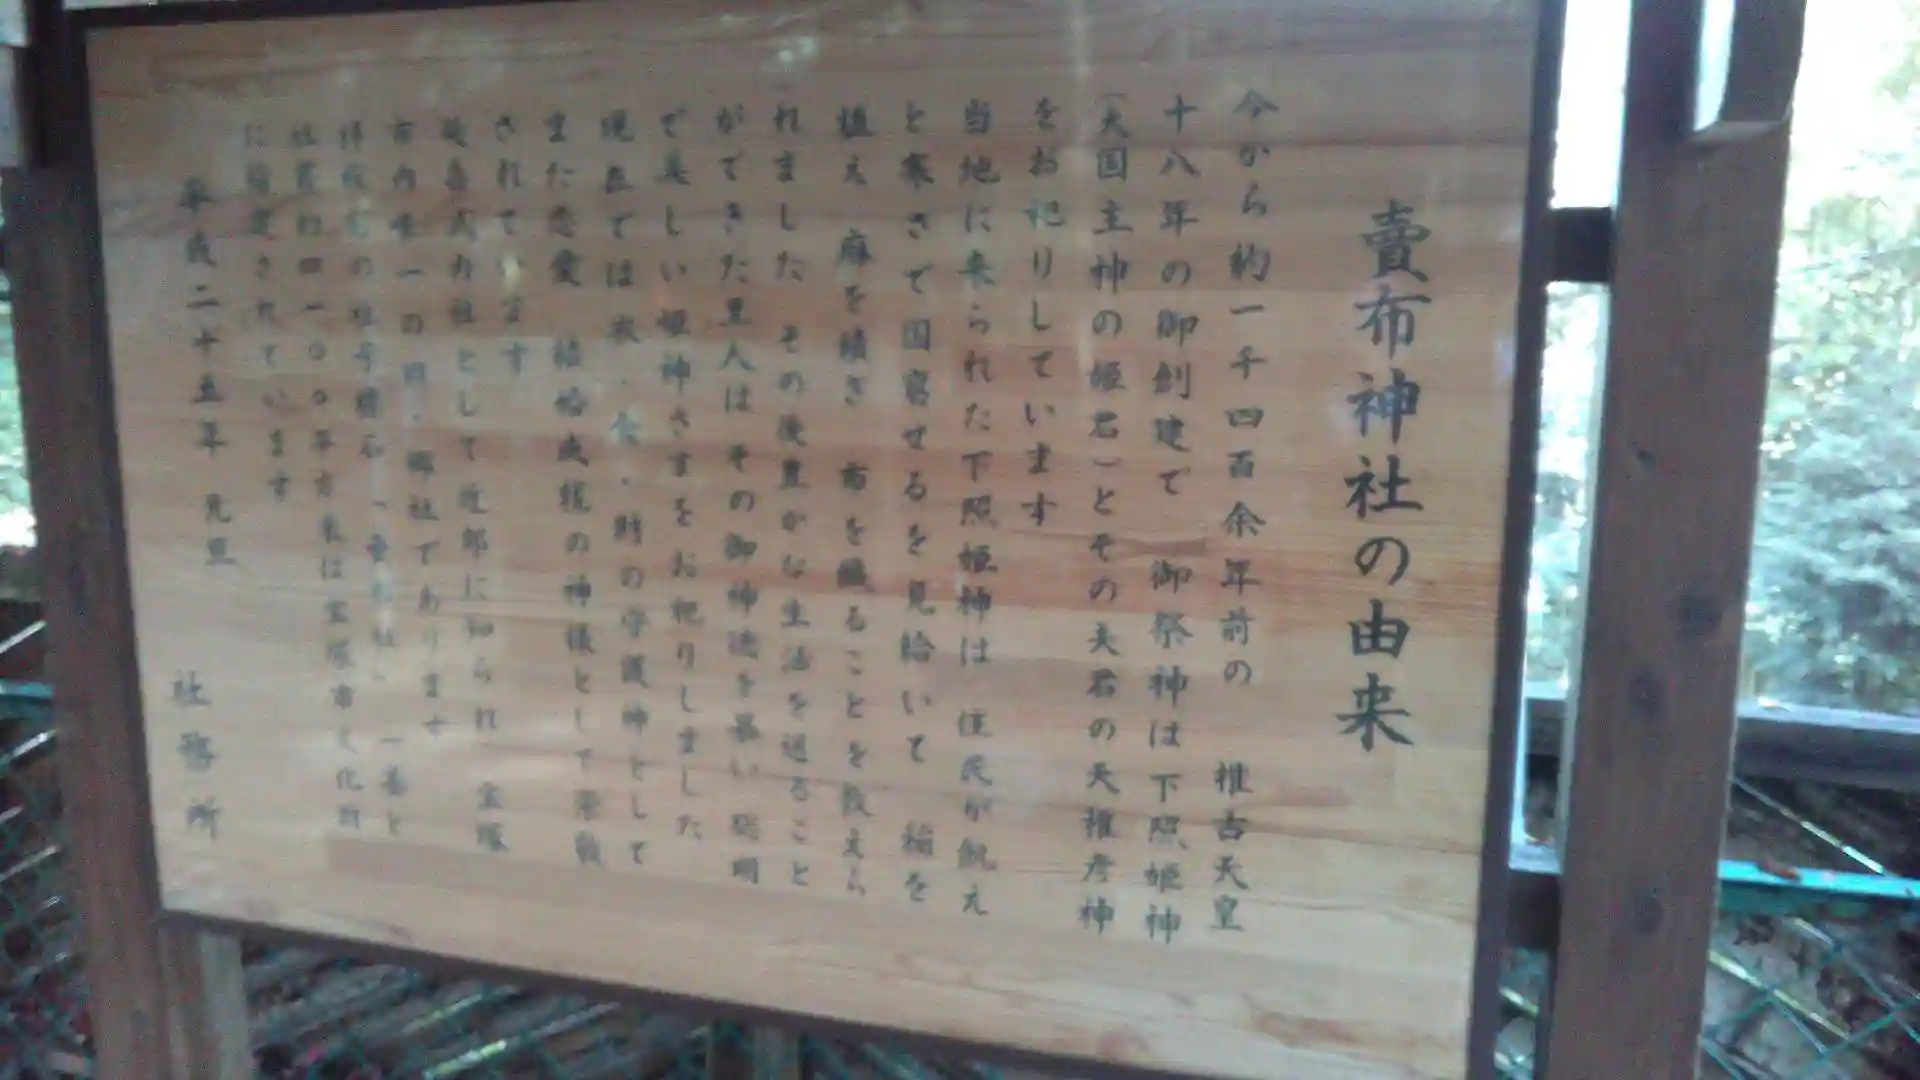 賣布神社の由来
今から約一千四百余年前の 推古天皇
十八年の御創建で 御祭神は下照姫神
(大国主神の姫君)とその夫君の天稚彦神
をお祀りしています
当地に来られた下照姫神は 住民が飢え
と寒さで困窮せるを見給いて 稲を
植え 麻を績ぎ 布を織ることを教えら
れました その後豊かな生活を送ること
ができた里人はその御神徳を慕い 聡明
で美しい姫神さまをお祀りしました
現在では衣・食・財の守護神として
また恋愛 結婚成就の神様として崇敬
されています
延喜式内社として近郷に知られ 宝塚
市内唯一の 郷社であります
の社号標石
社叢約四一〇〇平方米は宝塚市文化財
に指定されています
平成二十五年 元旦
社務所